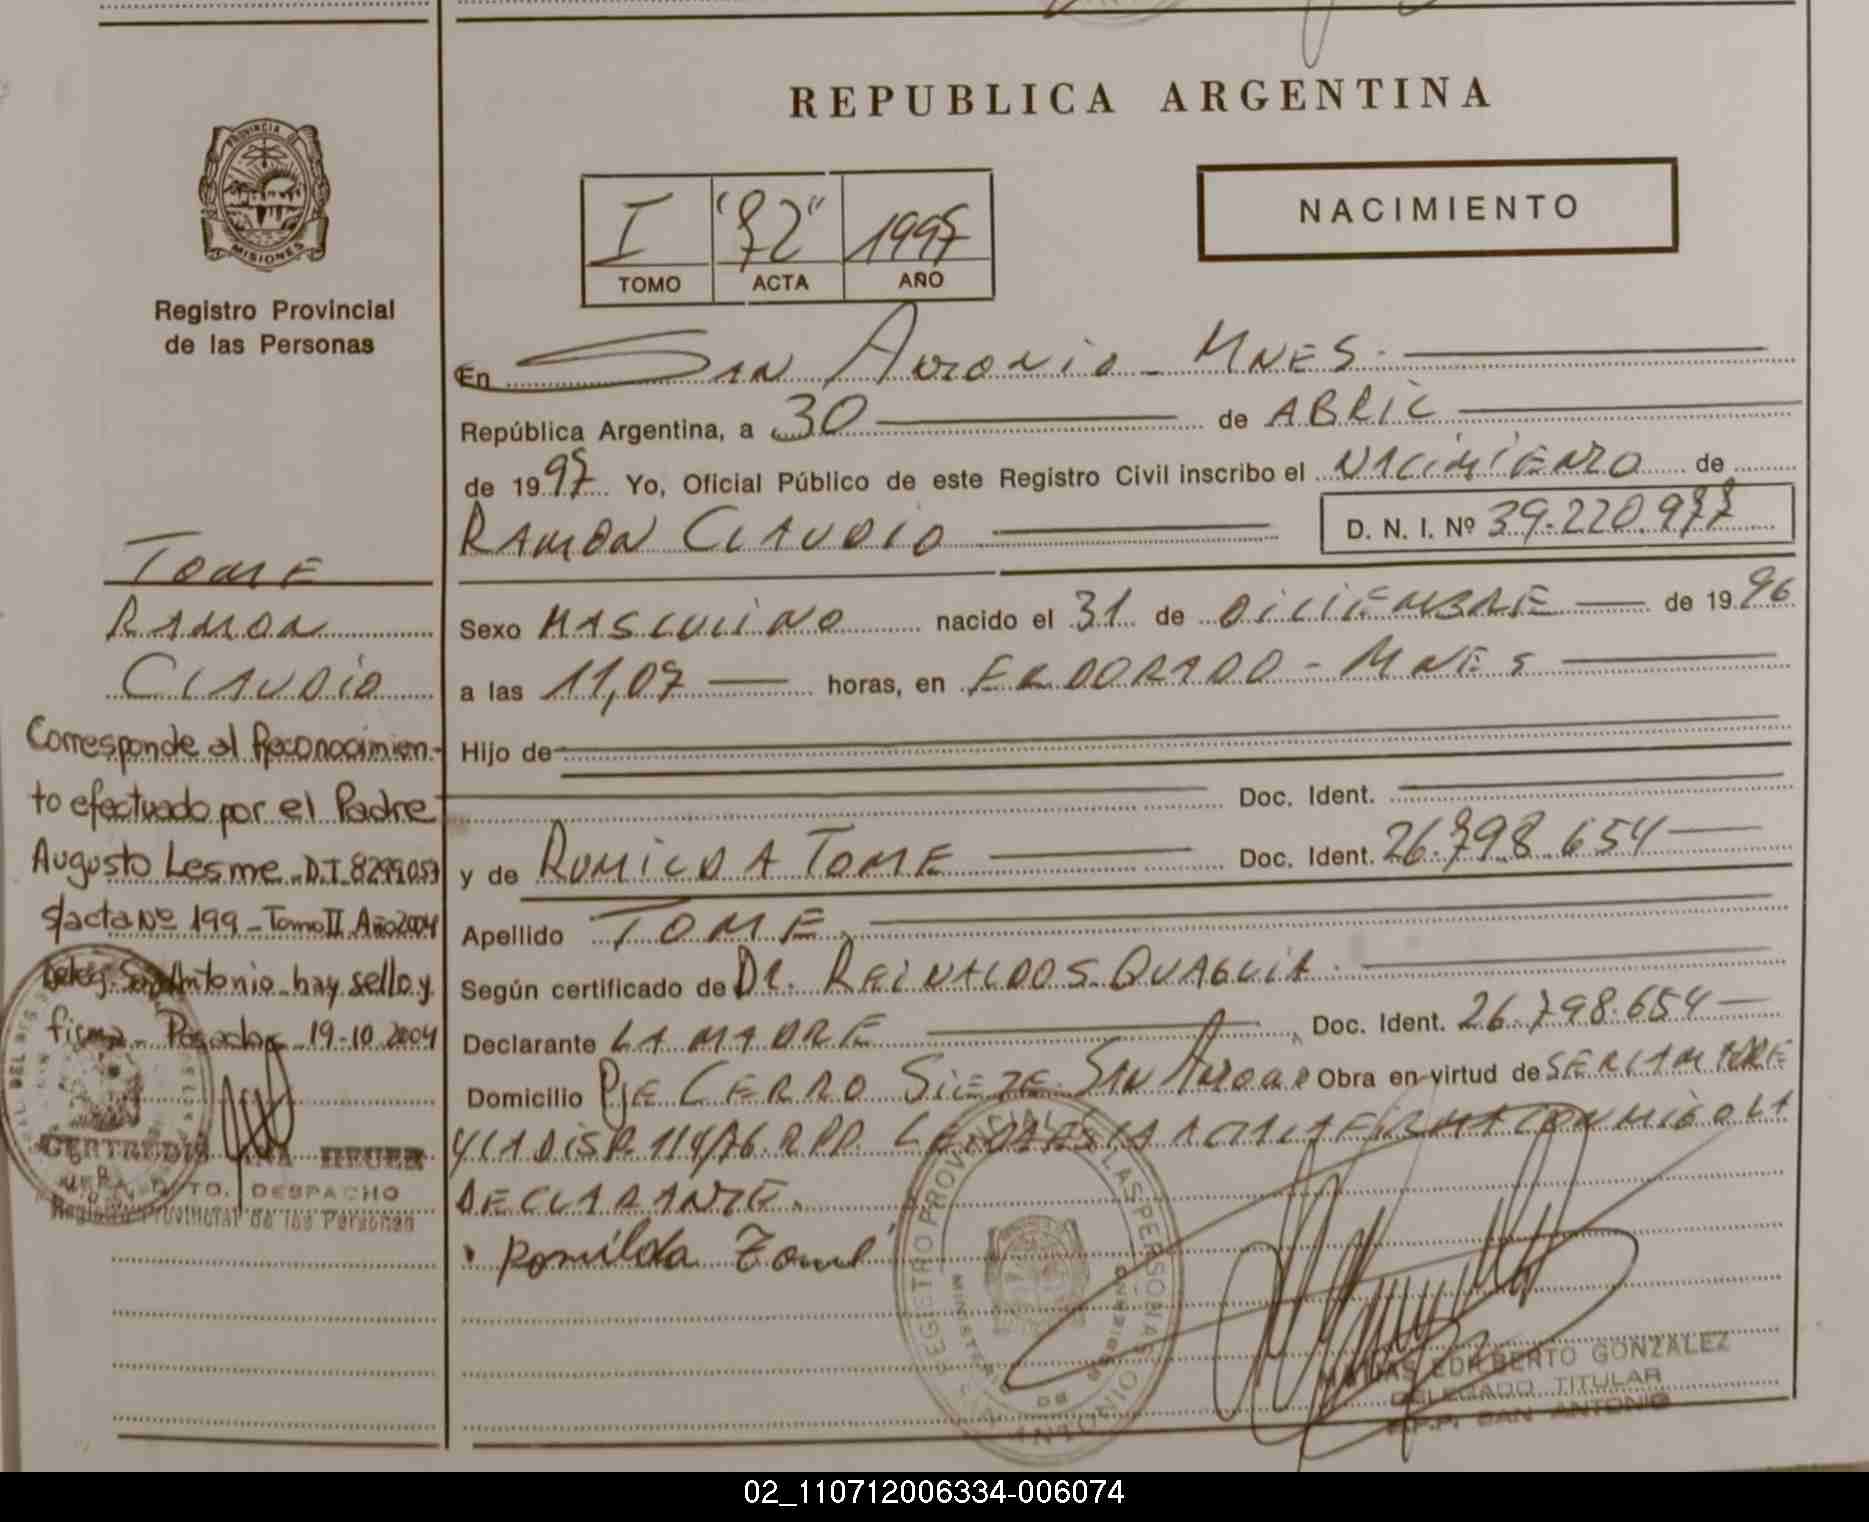 REPUBLICA ARGENTINA
PROVINCIA DE
MISIONES
Registro Provincial
de las Personas
I "72" 1997
TOMO ACTA AÑO
NACIMIENTO
En San Antonio - MNES.
República Argentina, a 30 de ABRIL
de 1997 Yo, Oficial Público de este Registro Civil inscribo el NACIMIENTO de
RAMON CLAUDIO D. N. I. Nº 39.220.977
Sexo MASCULINO nacido el 31 de DICIEMBRE de 1996
a las 11,07 horas, en ELDORADO - MNES
Hijo de
Doc. Ident.
y de ROMILDA TOME Doc. Ident. 26.798.654
Apellido TOME
Según certificado de Dr. REINALDO S. QUAGLIA.
Declarante LA MADRE Doc. Ident. 26.798.654
Domicilio Pje CERRO SIETE SAN Antonio Obra en virtud de SER LA MADRE
Y LA DISP. 114/76. RPP. LEIDA ESTA ACTA LA FIRMA CONMIGO LA
DECLARANTE.
Romilda Tome
TOME
RAMON
CLAUDIO
Corresponde al Reconocimien-
to efectuado por el Padre
Augusto Lesme D.I. 8299059
s/acta Nº 199 - Tomo II Año 2004
Deleg. San Antonio hay sello y
firma - Posadas 19-10 2004
GERTRUDIS ANA HEUER
DPTO. DESPACHO
Registro Provincial de las Personas
REGISTRO PROVINCIAL DE LAS PERSONAS
MINISTERIO DE GOBIERNO
SAN ANTONIO
EDILBERTO GONZALEZ
DELEGADO TITULAR
R.P.P. SAN ANTONIO
02_110712006334-006074